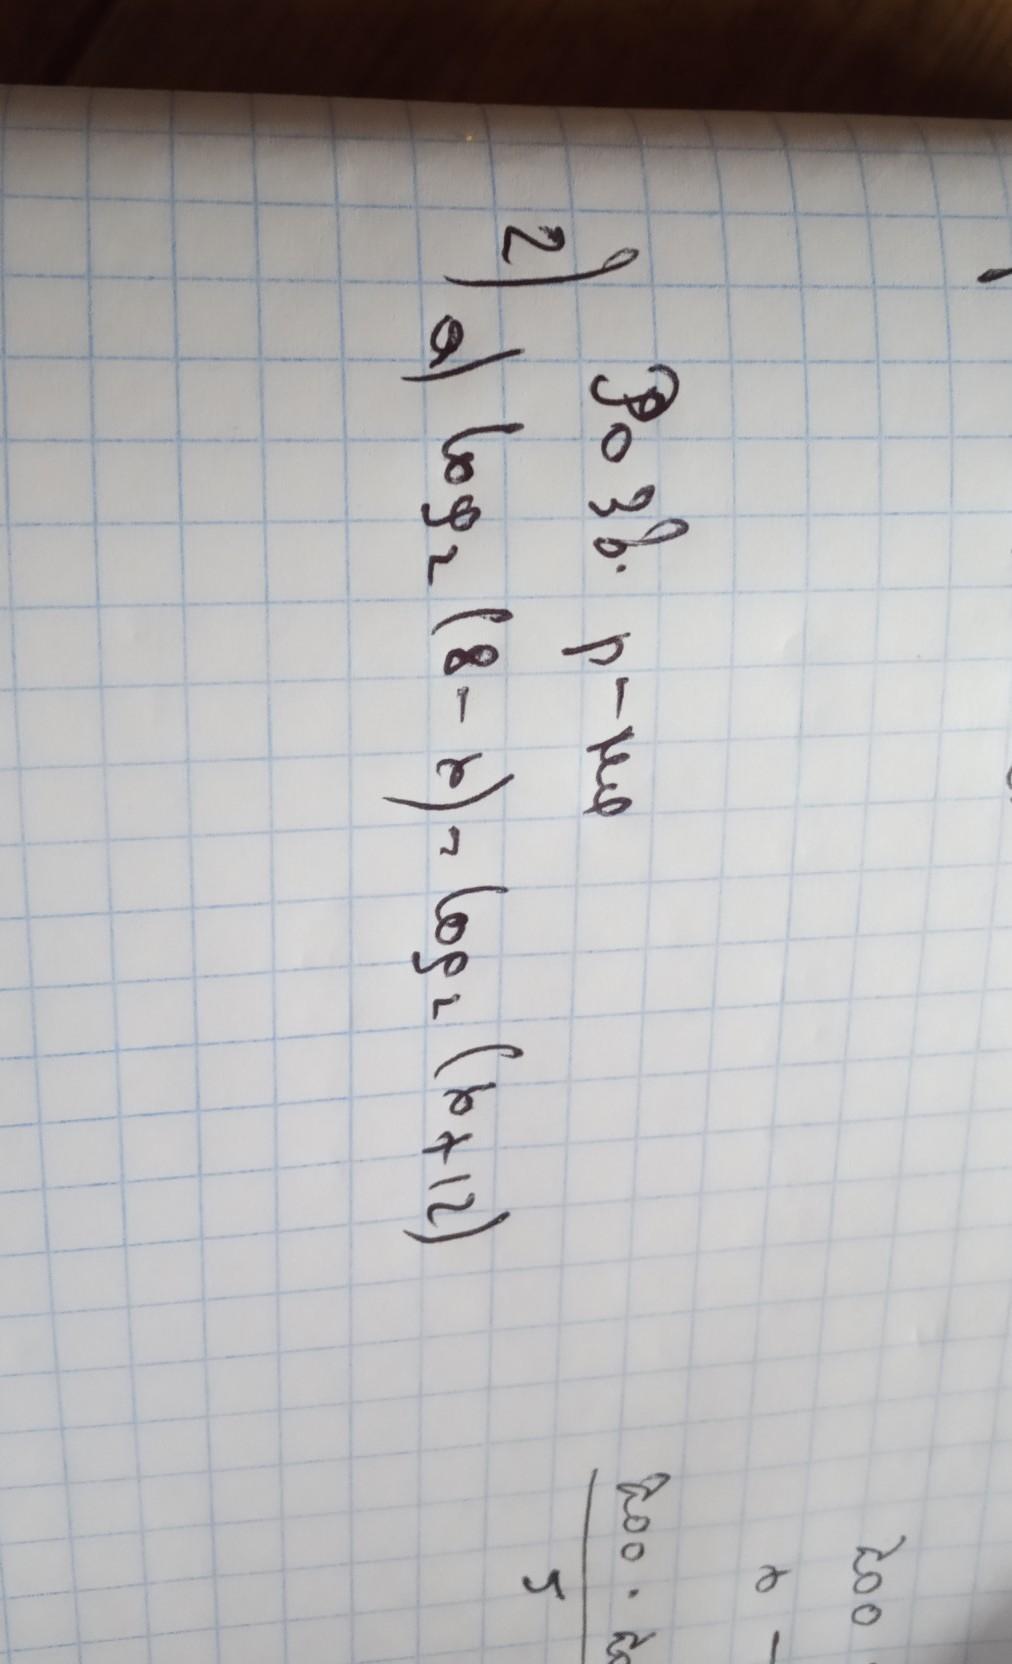 2) Розв. р-ня
а) log₂ (8 - x) = log₂ (x + 12)
200
x -
200 ·
5